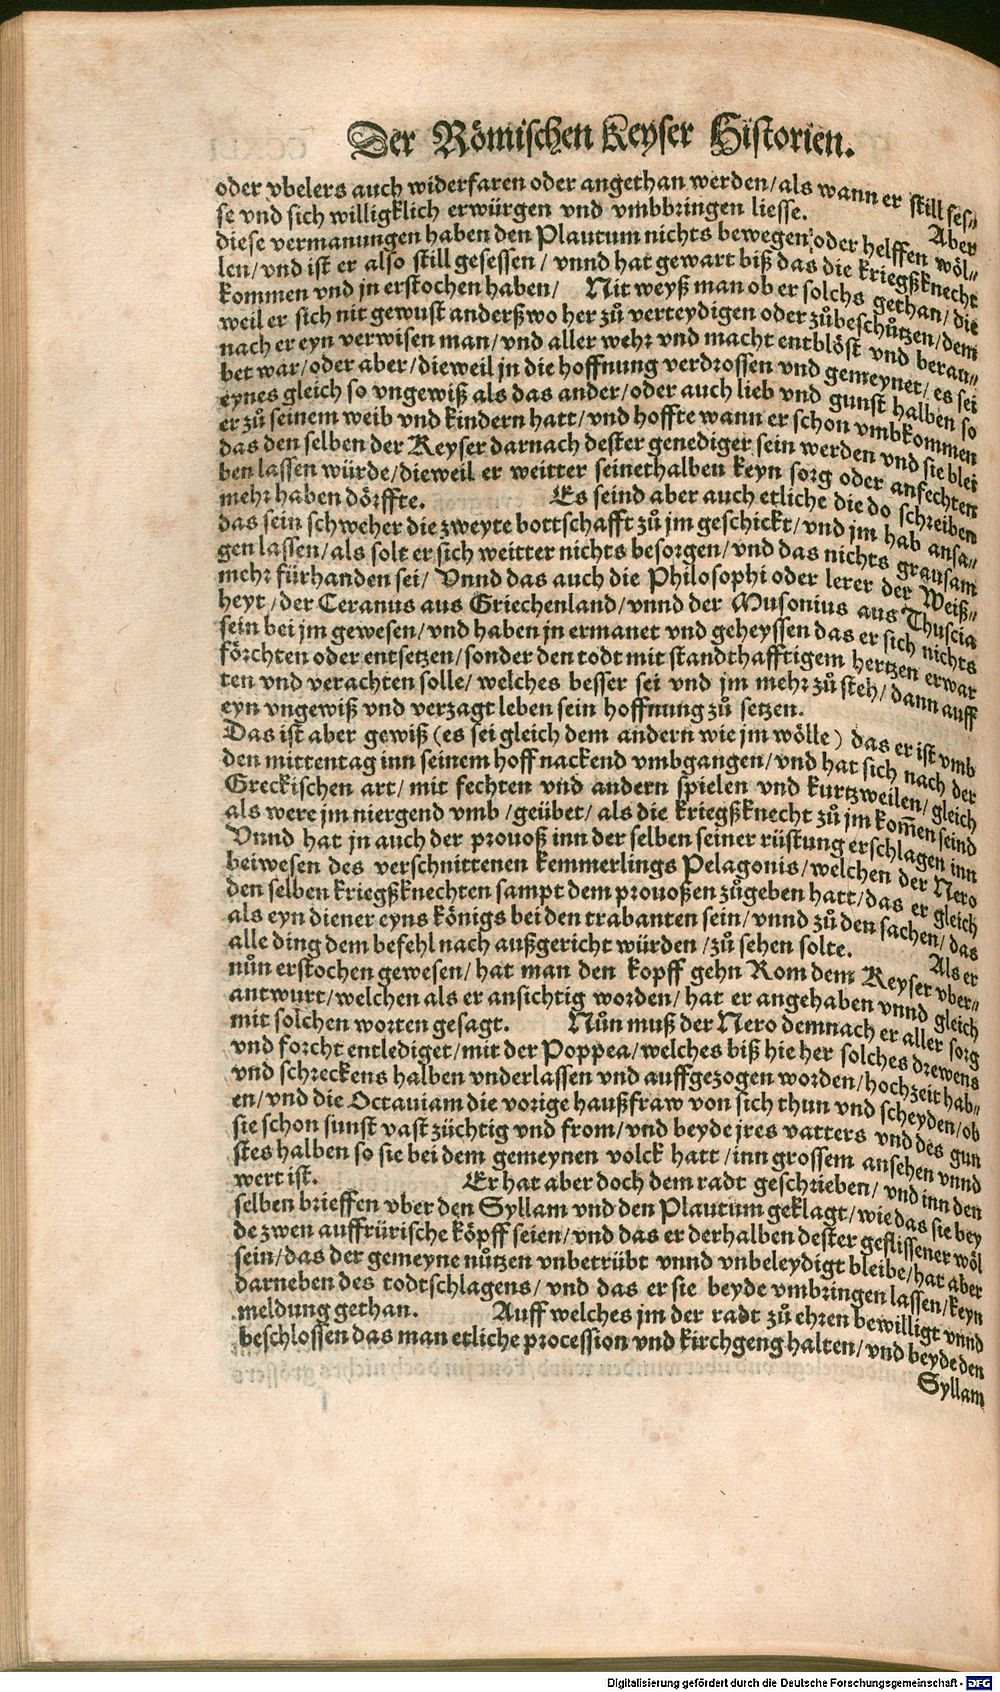 Der Römischen Keyser Historien.
oder vbelers auch widerfaren oder angethan werden/als wann er still ses⸗
se vnd sich willigklich erwürgen vnd vmbbringen liesse. Aber
diese vermanungen haben den Plautum nichts bewegen oder helffen wöl⸗
len/vnd ist er also still gesessen/vnnd hat gewart biß das die kriegßknecht
kommen vnd jn erstochen haben/ Nit weyß man ob er solchs gethan/die
weil er sich nit gewust anderßwo her zů verteydigen oder zůbeschützen/dem
nach er eyn verwisen man/vnd aller wehr vnd macht entblöst vnd berau⸗
bet war/oder aber/dieweil jn die hoffnung verdrossen vnd gemeynet/es sei
eynes gleich so vngewiß als das ander/oder auch lieb vnd gunst halben so
er zů seinem weib vnd kindern hatt/vnd hoffte wann er schon vmbkommen
das den selben der Keyser darnach dester genediger sein werden vnd sie blei
ben lassen würde/dieweil er weitter seinethalben keyn sorg oder anfechten
mehr haben dörffte. Es seind aber auch etliche die do schreiben
das sein schweher die zweyte bottschafft zů jm geschickt/vnd jm hab ansa⸗
gen lassen/als solt er sich weitter nichts besorgen/vnd das nichts grausam
mehr fürhanden sei/ Vnnd das auch die Philosophi oder lerer der Weiß⸗
heyt/der Ceranus aus Griechenland/vnnd der Musonius aus Thuscia
sein bei jm gewesen/vnd haben jn ermanet vnd geheyssen das er sich nichts
förchten oder entsetzen/sonder den todt mit standthafftigem hertzen erwar
ten vnd verachten solle/welches besser sei vnd jm mehr zů steh/dann auff
eyn vngewiß vnd verzagt leben sein hoffnung zů setzen.
Das ist aber gewiß (es sei gleich dem andern wie jm wölle) das er ist vmb
den mittentag inn seinem hoff nackend vmbgangen/vnd hat sich nach der
Greckischen art/mit fechten vnd andern spielen vnd kurtzweilen/gleich
als were jm niergend vmb/geübet/als die kriegßknecht zů jm kom̃en seind
Vnnd hat jn auch der prouoß inn der selben seiner rüstung erschlagen inn
beiwesen des verschnittenen kemmerlings Pelagonis/welchen der Nero
den selben kriegßknechten sampt dem prouoßen zůgeben hatt/das er gleich
als eyn diener eyns königs bei den trabanten sein/vnnd zů den sachen/das
alle ding dem befehl nach außgericht würden/zů sehen solte. Als er
nůn erstochen gewesen/hat man den kopff gehn Rom dem Keyser vber⸗
antwurt/welchen als er ansichtig worden/hat er angehaben vnnd gleich
mit solchen worten gesagt. Nůn muß der Nero demnach er aller sorg
vnd forcht entlediget/mit der Poppea/welches biß hie her solches drewens
vnd schreckens halben vnderlassen vnd auffgezogen worden/hochzeit hab⸗
en/vnd die Octauiam die vorige haußfraw von sich thun vnd scheyden/ob
sie schon sunst vast züchtig vnd from/vnd beyde jres vatters vnd des gun
stes halben so sie bei dem gemeynen volck hatt/inn grossem ansehen vnnd
wert ist. Er hat aber doch dem radt geschrieben/vnd inn den
selben brieffen vber den Syllam vnd den Plautum geklagt/wie das sie bey
de zwen auffrürische köpff seien/vnd das er derhalben dester geflissener wöl
sein/das der gemeyne nützen vnbetrübt vnnd vnbeleydigt bleibe/hat aber
darneben des todtschlagens/vnd das er sie beyde vmbringen lassen/keyn
meldung gethan. Auff welches jm der radt zů ehren bewilligt vnnd
beschlossen das man etliche procession vnd kirchgeng halten/vnd beyde den
Syllam
Digitalisierung gefördert durch die Deutsche Forschungsgemeinschaft - DFG